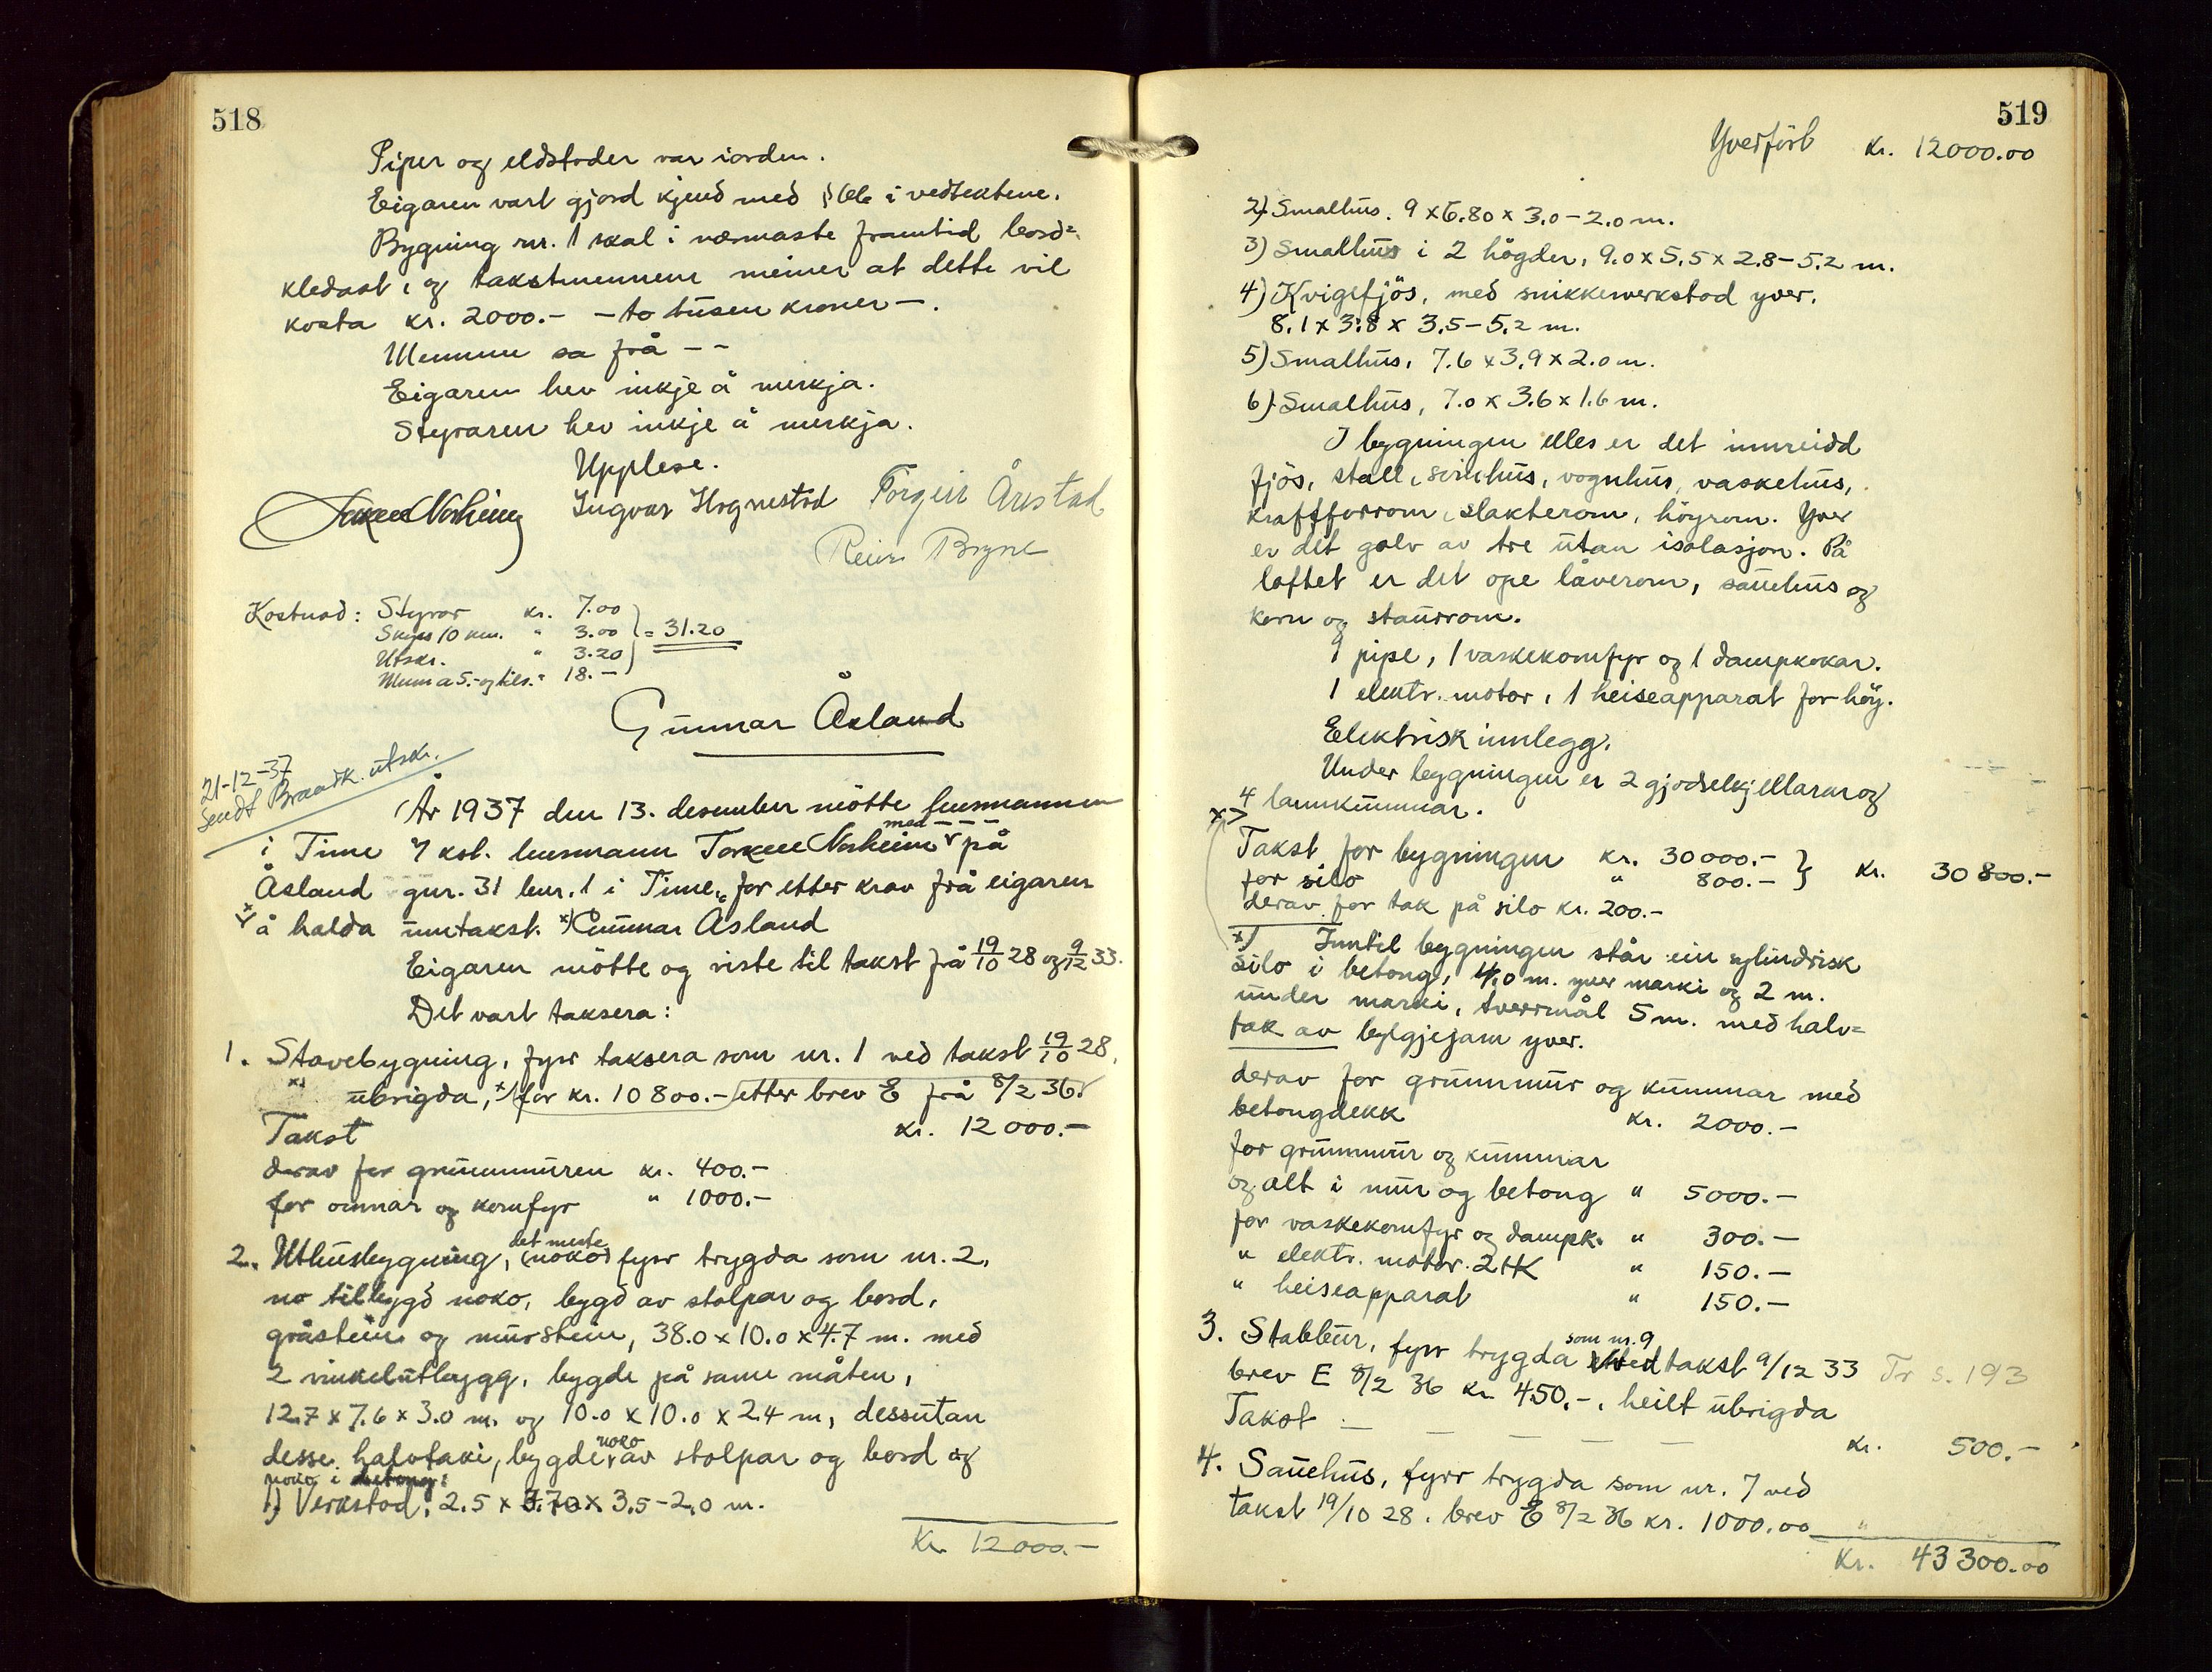 518
Piper og eldstoder var iorden.
Eigaren vart gjord kjend med § 66 i vedtektene.
Bygning nr. 1 skal i nærmaste framtid bord=
kledast, og takstmennene meiner at dette vil
kosta kr. 2000.- - to tusen kroner -.
Mennene sa frå - -
Eigaren hev inkje å merkja.
Styraren hev inkje å merkja.
Upplese.
Torkell Norheim Ingvar Hognestad Torgeir Årrestad
Reier Bryne
Kostnad: Styrar kr. 7.00
Skyss 10 km. " 3.00 = 31.20
Utskr. " 3.20
Menn a 5.- og tils. " 18.-
Gunnar Åsland
21-12-37
Sendt Brandk. utskr.
År 1937 den 13. desember møtte lensmannen
med - - -
i Time v/ kst. lensmann Torkell Norheim på
Åsland gnr. 31 bnr. 1 i Time, for etter krav frå eigaren
å halda umtakst. x) Gunnar Åsland
Eigaren møtte og viste til takst frå 19/10 28 og 9/12 33.
Det vart taksera:
1. Stovebygning, fyrr taksera som nr. 1 ved takst 19/10 28,
ubrigda, x) for kr. 10800.- etter brev E frå 8/2 36.
Takst kr. 12000.-
derav for grunnmuren kr. 400.-
for omnar og komfyr " 1000.-
det meste
2. Uthusbygning, (noko) fyrr trygda som nr. 2,
no tilbygd noko, bygd av stolpar og bord,
gråstein og murstein, 38.0 x 10.0 x 4.7 m. med
2 vinkelutbygg, bygde på same måten,
12.7 x 7.6 x 3.0 m. og 10.0 x 10.0 x 2.4 m, dessutan
noko
desse halvtaki, bygde av stolpar og bord og
noko i betong:
1) Verkstad, 2.5 x 3.70 x 3.5-2.0 m.
Kr. 12000.-
519
Yverført kr. 12000.00
2) Smalhus. 9 x 6.80 x 3.0-2.0 m.
3) Smalhus i 2 högder, 9.0 x 5.5 x 2.8-5.2 m.
4) Kvigefjös, med snikkerverkstad yver.
8.1 x 3.8 x 3.5-5.2 m.
5) Smalhus, 7.6 x 3.9 x 2.0 m.
6) Smalhus, 7.0 x 3.6 x 1.6 m.
I bygningen elles er det innreidd
fjös, stall, svinhus, vognhus, vaskehus,
kraftforrom, slakterom, höyrom. Yver
er det golv av tre utan isolasjon. På
loftet er det ope låverom, sauehus og
korn og staurrom.
1 pipe, 1 vaskekomfyr og 1 dampkokar.
1 elektr. motor, 1 heiseapparat for höy.
Elektrisk innlegg.
Under bygningen er 2 gjødselkjellarar og
4 lannkummar.
x>
Takst for bygningen kr. 30000.-
for silo " 800.- } kr. 30800.-
derav for tak på silo kr. 200.-
x) Inntil bygningen står ein sylindrisk
silo i betong, 4.0 m. yver marki og 2 m.
under marki, tverrmål 5 m. med halv=
tak av bylgjejarn yver.
derav for grunnmur og kummar med
betongdekk kr. 2000.-
for grunnmur og kummar
og alt i mur og betong " 5000.-
for vaskekomfyr og dampk. " 300.-
" elektr. motor. 2 HK " 150.-
" heiseapparat " 150.-
som nr. 9
3. Stabbur, fyrr trygda ved takst 9/12 33 Tr s. 193
brev E 8/2 36 kr. 450.-, heilt ubrigda
Takst - - - - - kr. 500.-
4. Sauehus, fyrr trygda som nr. 7 ved
takst 19/10 28. brev E 8/2 36 kr. 1000.00 "
Kr. 43300.00